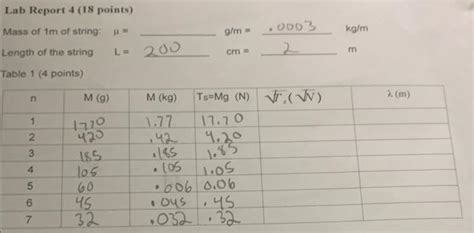 Lab Report 4 (18 points)
Mass of 1m of string: μ = g/m = .0003 kg/m
Length of the string L= 200 cm = 2 m
Table 1 (4 points)
n M (g) M (kg) Ts=Mg (N) √Ts (√N) λ (m)
1 1770 1.77 17.70
2 420 .42 4.20
3 185 .185 1.85
4 105 .105 1.05
5 60 .006 0.06
6 45 .045 .45
7 32 .032 .32